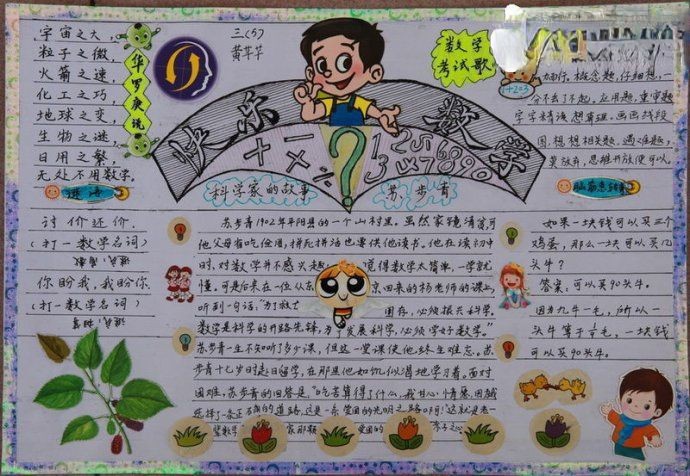 宇宙之大，
粒子之微，
火箭之速，
化工之巧，
地球之变，
生物之谜，
日用之繁，
无处不用数学。
华罗庚说
三(5)
黄芊芊
快乐数学
数学
考试歌
概念题，仔细想，一
分丢了不起，应用题，重审题
字字精读想背理。画画线段
图，想想相关题。遇难题，
莫放弃，思维开放便可以。
谜语
讨价还价.
(打一数学名词)
你盼我，我盼你.
(打一数学名词)
科学家的故事
苏步青
苏步青1902年平阳县的一个山村里。虽然家境清贫，可
他父母省吃俭用，拼死拼活也要供他读书。他在读初中
时，对数学并不感兴趣，觉得数学太简单，一学就
懂。可是后来在一位从东京回来的杨老师的课上，
听到一句话：“为了救亡图存，必须振兴科学。
数学是科学的开路先锋，为了发展科学，必须学好数学。”
苏步青一生不知听了多少课，但这一堂课使他终生难忘。苏
步青十七岁时赴日留学，在那里他如饥似渴地学习着。面对
困难，苏步青的回答是，“吃苦算得了什么，我甘心情愿，因为我
选择了一条正确的道路，这是一条爱国的光明之路啊！”这就是老一
辈数学家那颗爱国的赤子之心
脑筋急转弯
如果一块钱可以买三个
鸡蛋，那么一块可以买几
头牛？
答案：可以买90头牛。
因为九牛一毛，所以一
头牛等于1/9毛，一块钱
可以买90头牛。